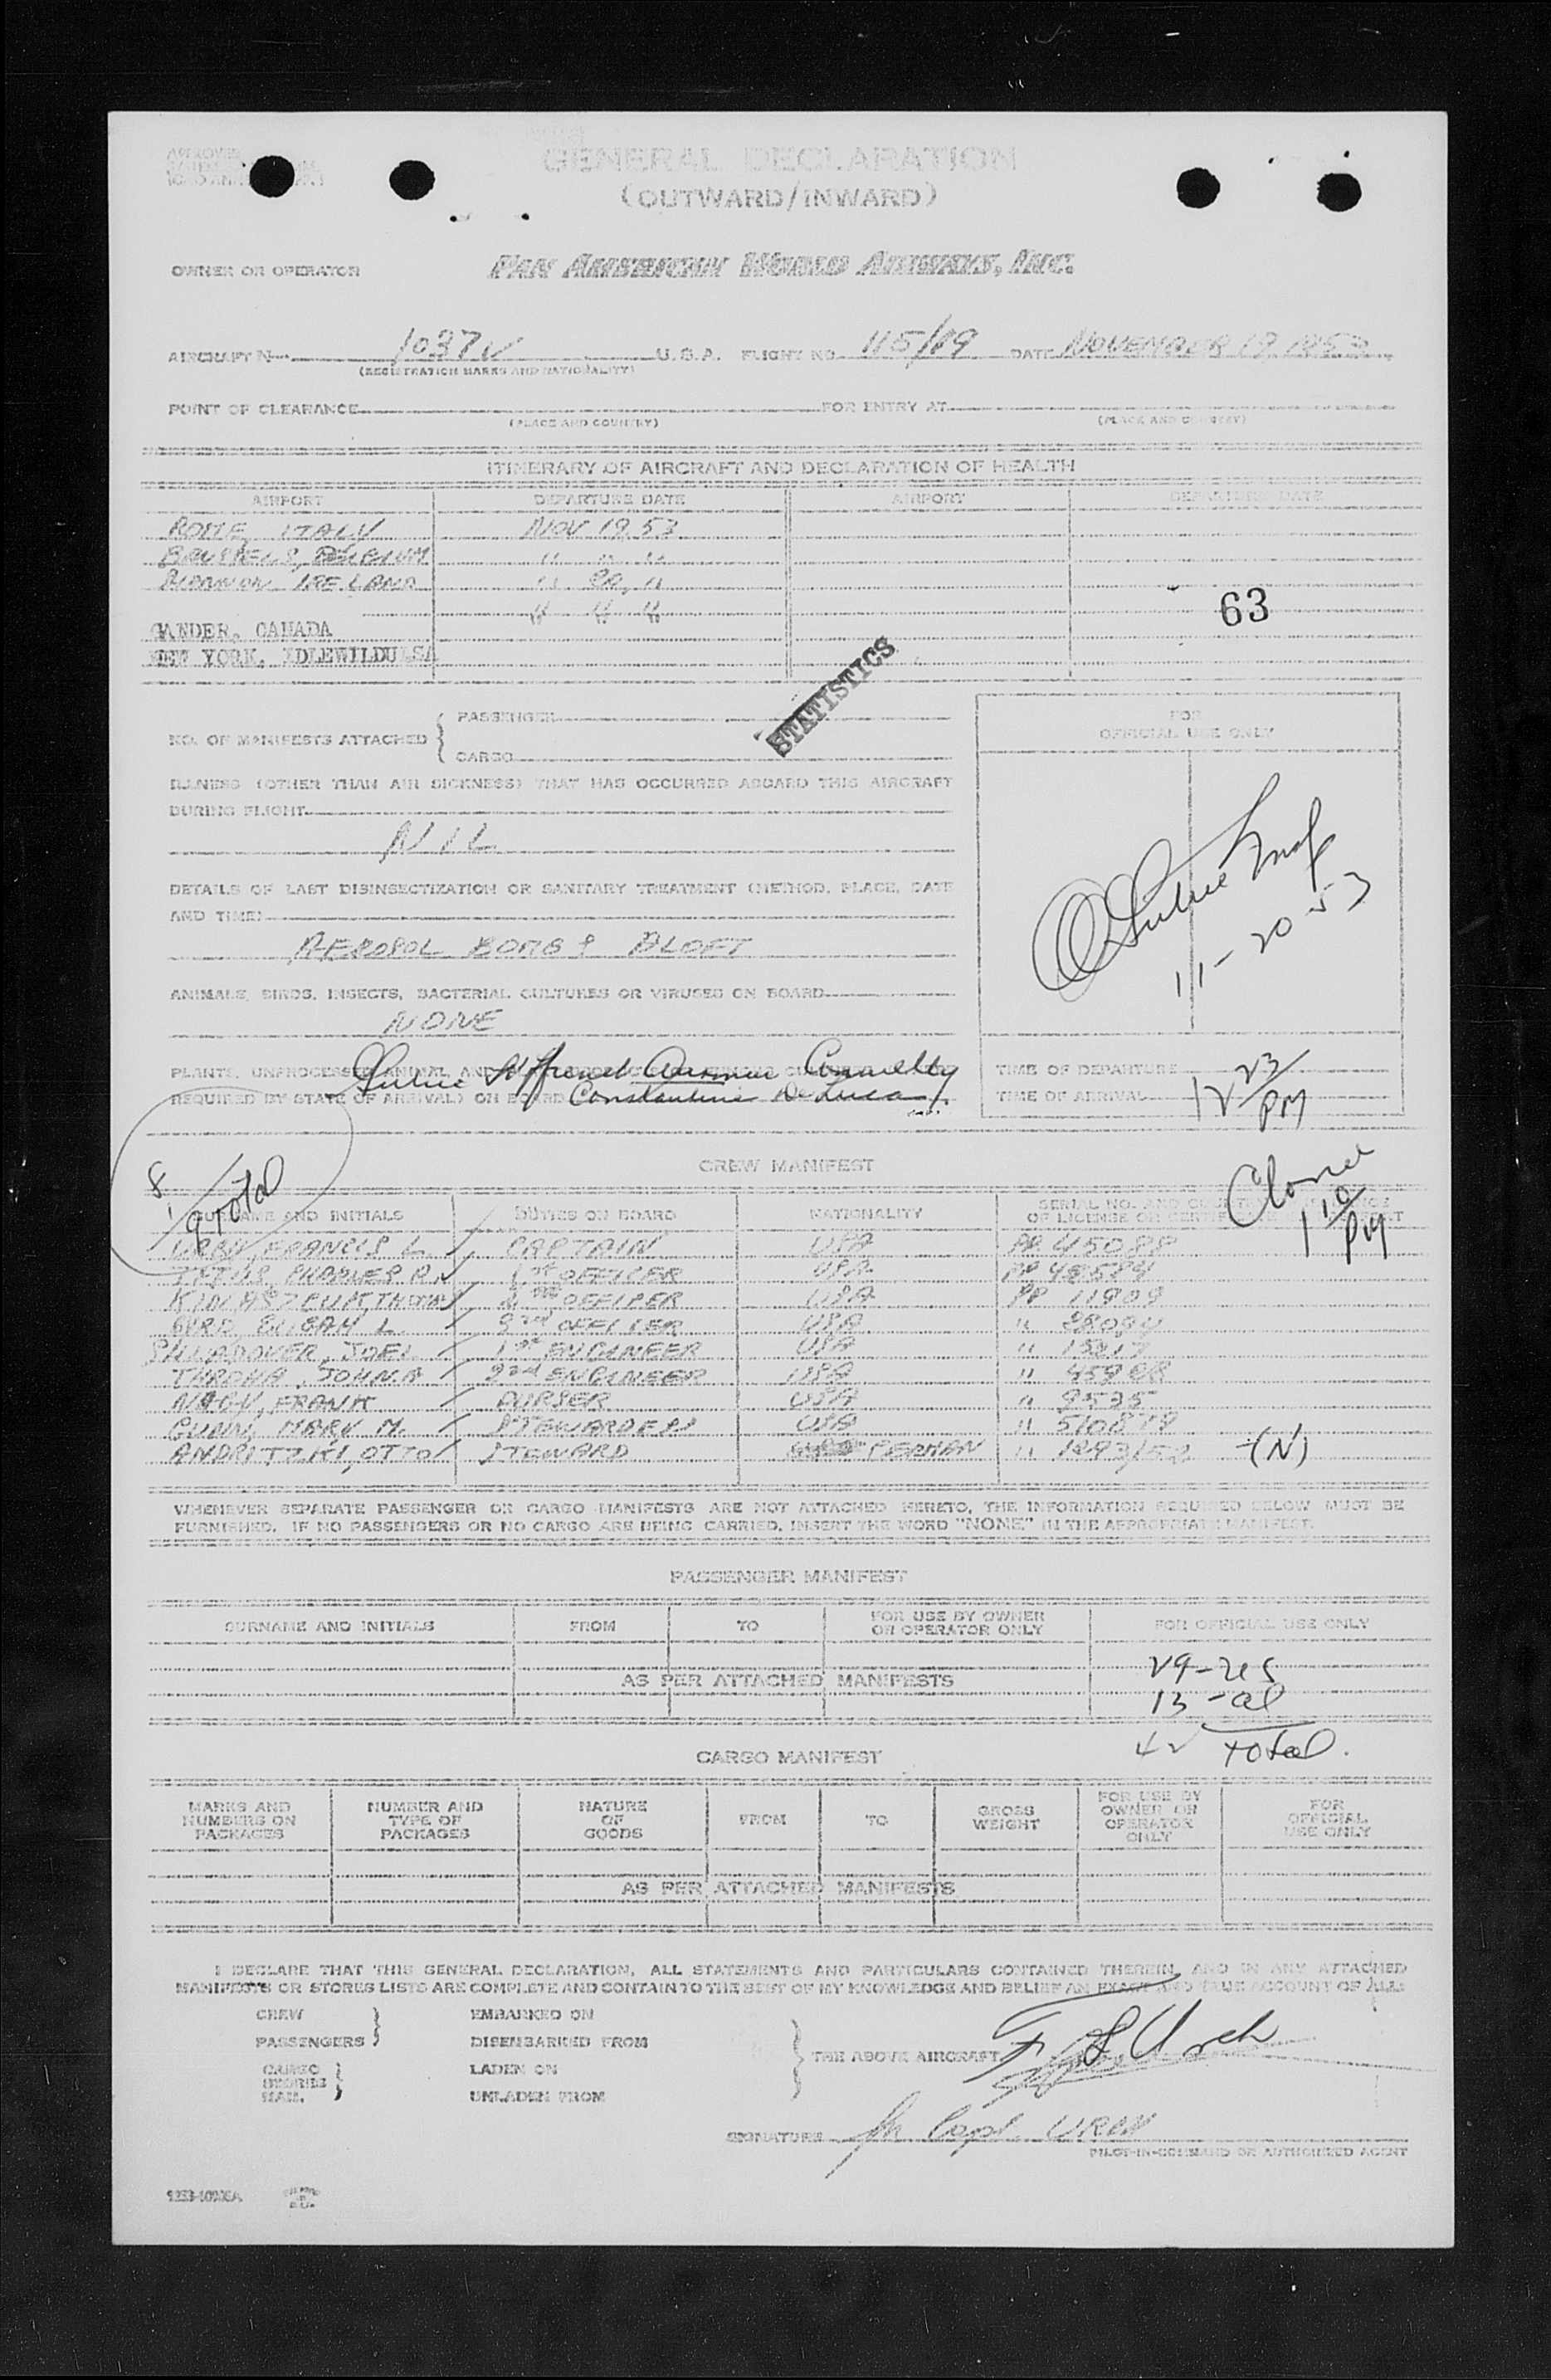 GENERAL DECLARATION
(OUTWARD/INWARD)
OWNER OR OPERATOR PAN AMERICAN WORLD AIRWAYS, INC.
AIRCRAFT N- 1037V U.S.A. FLIGHT NO. 115/19 DATE NOVEMBER 19 1953
(REGISTRATION MARKS AND NATIONALITY)
POINT OF CLEARANCE FOR ENTRY AT
(PLACE AND COUNTRY) (PLACE AND COUNTRY)
ITINERARY OF AIRCRAFT AND DECLARATION OF HEALTH
AIRPORT DEPARTURE DATE AIRPORT DEPARTURE DATE
ROME, ITALY NOV 19 53
BRUSSELS, BELGIUM " " "
SHANNON IRELAND " 20, "
" " "
63
GANDER, CANADA
NEW YORK, IDLEWILD USA
STATISTICS
NO. OF MANIFESTS ATTACHED { PASSENGER
CARGO
FOR
OFFICIAL USE ONLY
ILLNESS (OTHER THAN AIR SICKNESS) THAT HAS OCCURRED ABOARD THIS AIRCRAFT
DURING FLIGHT
NIL
DETAILS OF LAST DISINSECTIZATION OR SANITARY TREATMENT (METHOD, PLACE, DATE
AND TIME)
AEROSOL BOMBS ALOFT
11-20-53
ANIMALS, BIRDS, INSECTS, BACTERIAL CULTURES OR VIRUSES ON BOARD
NONE
PLANTS, UNPROCESSED ANIMAL, AND
Connelly
REQUIRED BY STATE OF ARRIVAL) ON BOARD
Constantine De Luca
TIME OF DEPARTURE
TIME OF ARRIVAL 12 23 PM
8
1
9 Total
CREW MANIFEST
110 PM
SURNAME AND INITIALS DUTIES ON BOARD NATIONALITY SERIAL NO. AND
OF LICENSE OR
URBN, FRANCIS L. CAPTAIN USA PP 45088
TITUS, CHARLES R. 1ST OFFICER USA PP 48584
THOMAS 2ND OFFICER USA PP 11909
L. 3RD OFFICER USA " 28094
SHLADOVER, JOEL 1ST ENGINEER USA "
JOHN A 2ND ENGINEER USA "
NAGY, FRANK PURSER USA " 9535
MARY M. STEWARDESS USA " 510879
ANDRITZKI, OTTO STEWARD GERMAN " 1893/52 -(N)
WHENEVER SEPARATE PASSENGER OR CARGO MANIFESTS ARE NOT ATTACHED HERETO, THE INFORMATION REQUIRED BELOW MUST BE
FURNISHED. IF NO PASSENGERS OR NO CARGO ARE BEING CARRIED, INSERT THE WORD "NONE" IN THE APPROPRIATE MANIFEST.
PASSENGER MANIFEST
SURNAME AND INITIALS FROM TO FOR USE BY OWNER OR OPERATOR ONLY FOR OFFICIAL USE ONLY
29-
AS PER ATTACHED MANIFESTS
13-al
42 Total.
CARGO MANIFEST
MARKS AND NUMBERS ON PACKAGES NUMBER AND TYPE OF PACKAGES NATURE OF GOODS FROM TO GROSS WEIGHT FOR USE BY OWNER OR OPERATOR ONLY FOR OFFICIAL USE ONLY
AS PER ATTACHED MANIFESTS
I DECLARE THAT THIS GENERAL DECLARATION, ALL STATEMENTS AND PARTICULARS CONTAINED THEREIN, AND IN ANY ATTACHED
MANIFESTS OR STORES LISTS ARE COMPLETE AND CONTAIN TO THE BEST OF MY KNOWLEDGE AND BELIEF AN EXACT AND TRUE ACCOUNT OF ALL:
CREW EMBARKED ON
PASSENGERS } DISEMBARKED FROM
THE ABOVE AIRCRAFT
CARGO LADEN ON
STORES }
MAIL UNLADEN FROM
SIGNATURE Capt. URBN
PILOT-IN-COMMAND OR AUTHORIZED AGENT